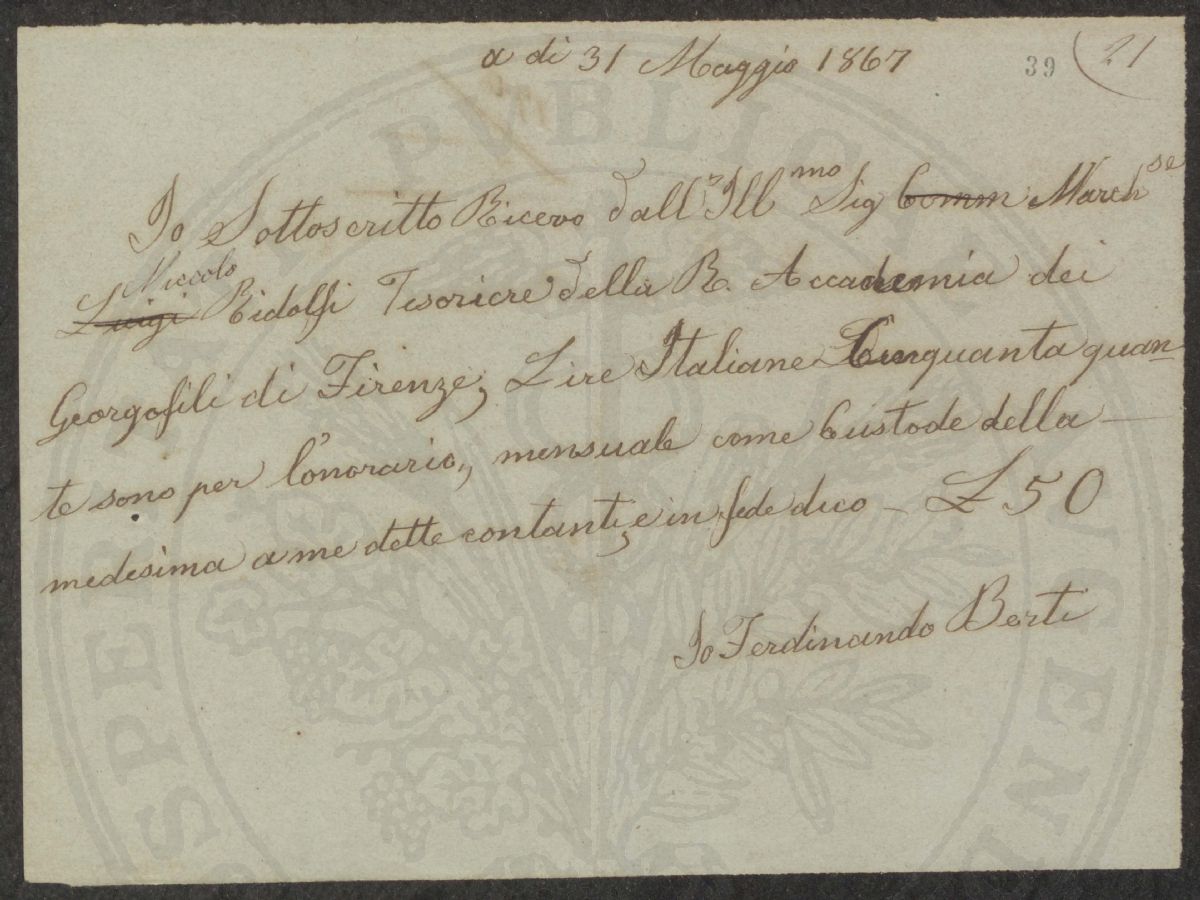 a di 31 Maggio 1867
39
21
Io Sottoscritto Ricevo dall' Ill.mo Sig Comm March.se
Niccolo
Luigi Ridolfi Tesoriere della R. Accademia dei
Georgofili di Firenze, Lire Italiane Cinquanta quan
te sono per l'onorario, mensuale come Custode della
medesima a me dette contanti, e in fede dico - £ 50
Io Ferdinando Berti
PVBLICAE
PROSPERITATI
AVGENDAE